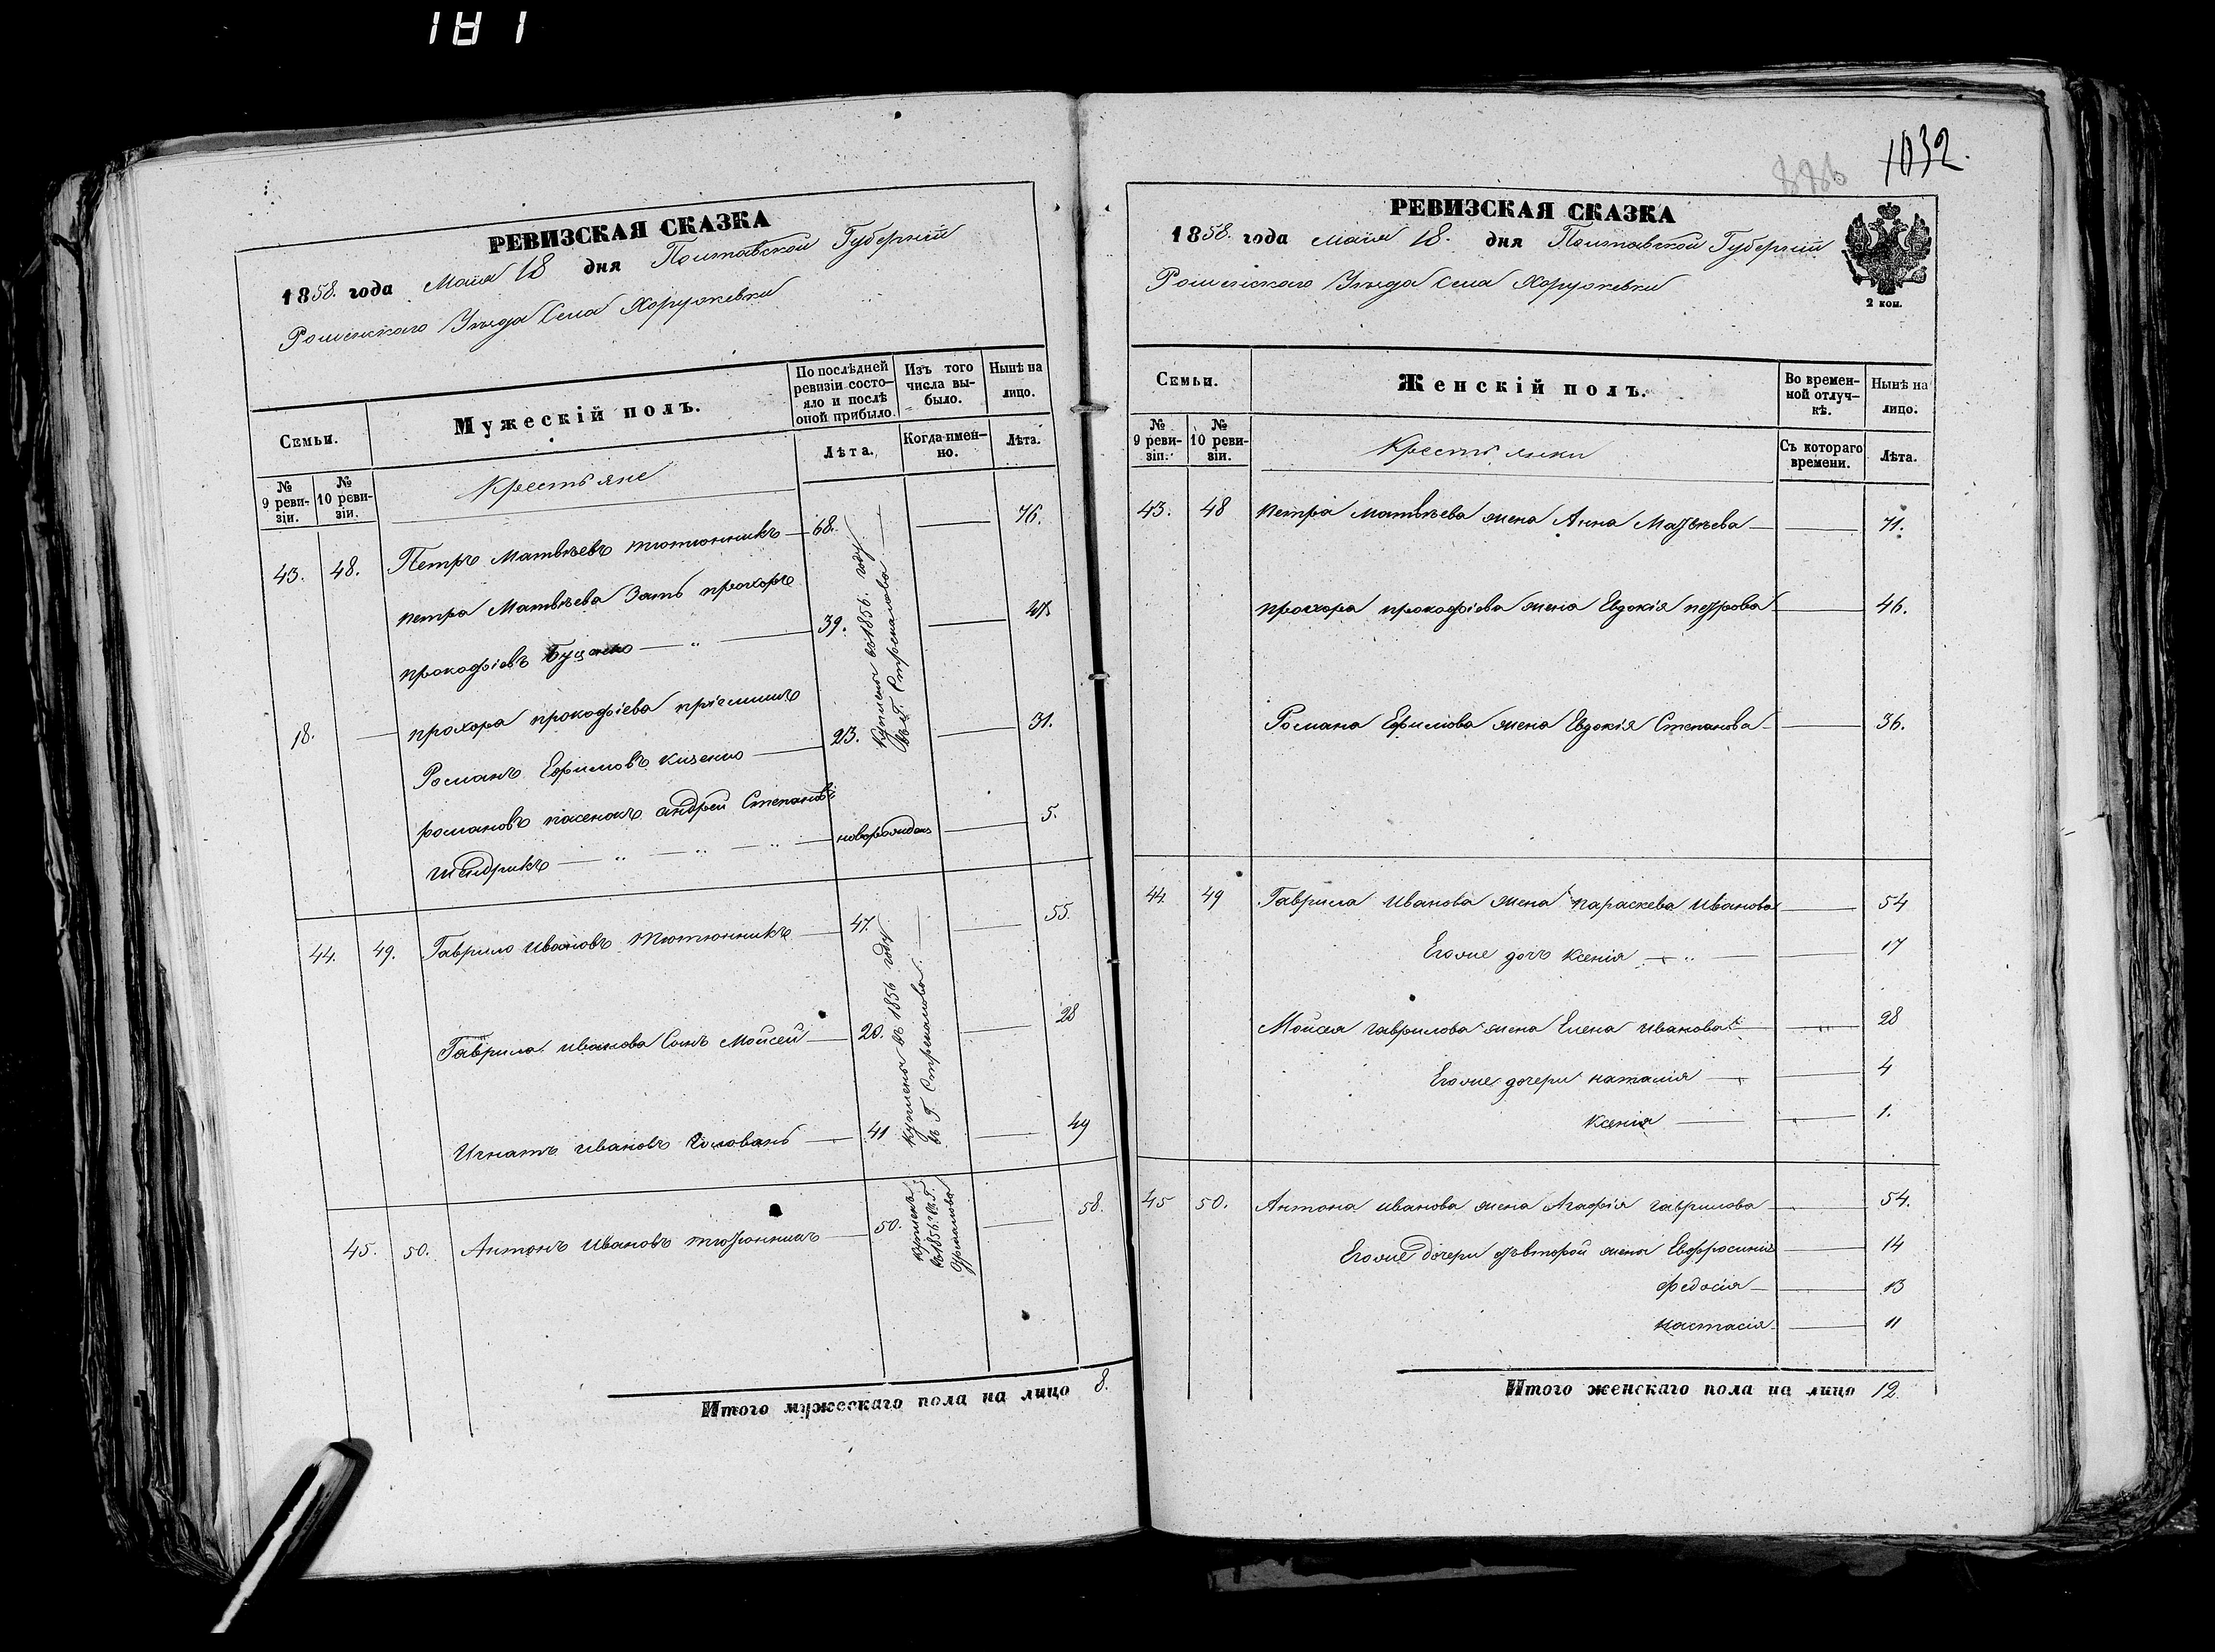 181
РЕВИЗСКАЯ СКАЗКА
1858. года Маія 18 дня Полтавской Губерніи
Роменскаго Уѣзда Села Хоружевки
Семьи.
Мужескій полъ.
По послѣдней ревизіи состо-
яло и послѣ
оной прибыло.
Изъ того
числа вы-
было.
Нынѣ на
лицо.
№
9 реви-
зіи.
№
10 реви-
зіи.
Крестьяне
Лѣта.
Когда имен-
но.
Лѣта.
43. 48. Петръ Матвѣевъ тютюнникъ 68. 76.
петра Матвѣева Зять прохоръ
прокофіевъ 39. 47.
18. прохора прокофіева пріемышъ
Романъ Ефимовъ 23. 31.
романовъ пасенокъ андрей Степановъ
новорожден 5.
куплены въ 1856. году
44. 49. Гаврило ивановъ тютюнникъ 47. 55.
Гаврила иванова Сынъ Мойсей 20. 28
Игнатъ ивановъ Головань 41 49
куплены въ 1856 году
45. 50. Антонъ Ивановъ тютюнникъ 50. 58.
Итого мужескаго пола на лицо 8.
886 1032.
РЕВИЗСКАЯ СКАЗКА
1858. года маія 18. дня Полтавской Губерніи
Роменскаго Уѣзда Села Хоружевки
2 коп.
Семьи.
Женскій полъ.
Во времен-
ной отлуч-
кѣ.
Нынѣ на
лицо.
№
9 реви-
зіи.
№
10 реви-
зіи.
Крестьянки
Съ котораго
времени.
Лѣта.
43. 48 петра матвѣева жена Анна Матвѣева 71.
прохора прокофіева жена Евдокія петрова 46.
Романа Ефимова жена Евдокія Степанова 36.
44. 49 Гаврила иванова жена параскева иванова 54
Егоже дочь ксенія 17
Мойсея гаврилова жена Елена иванова 28
Егоже дочери наталія 4
ксенія 1.
45 50. Антона иванова жена Агафія гаврилова 54.
Егоже дочери отъ второй жены Евфросинія 14
федосія 13
настасія 11
Итого женскаго пола на лицо 12